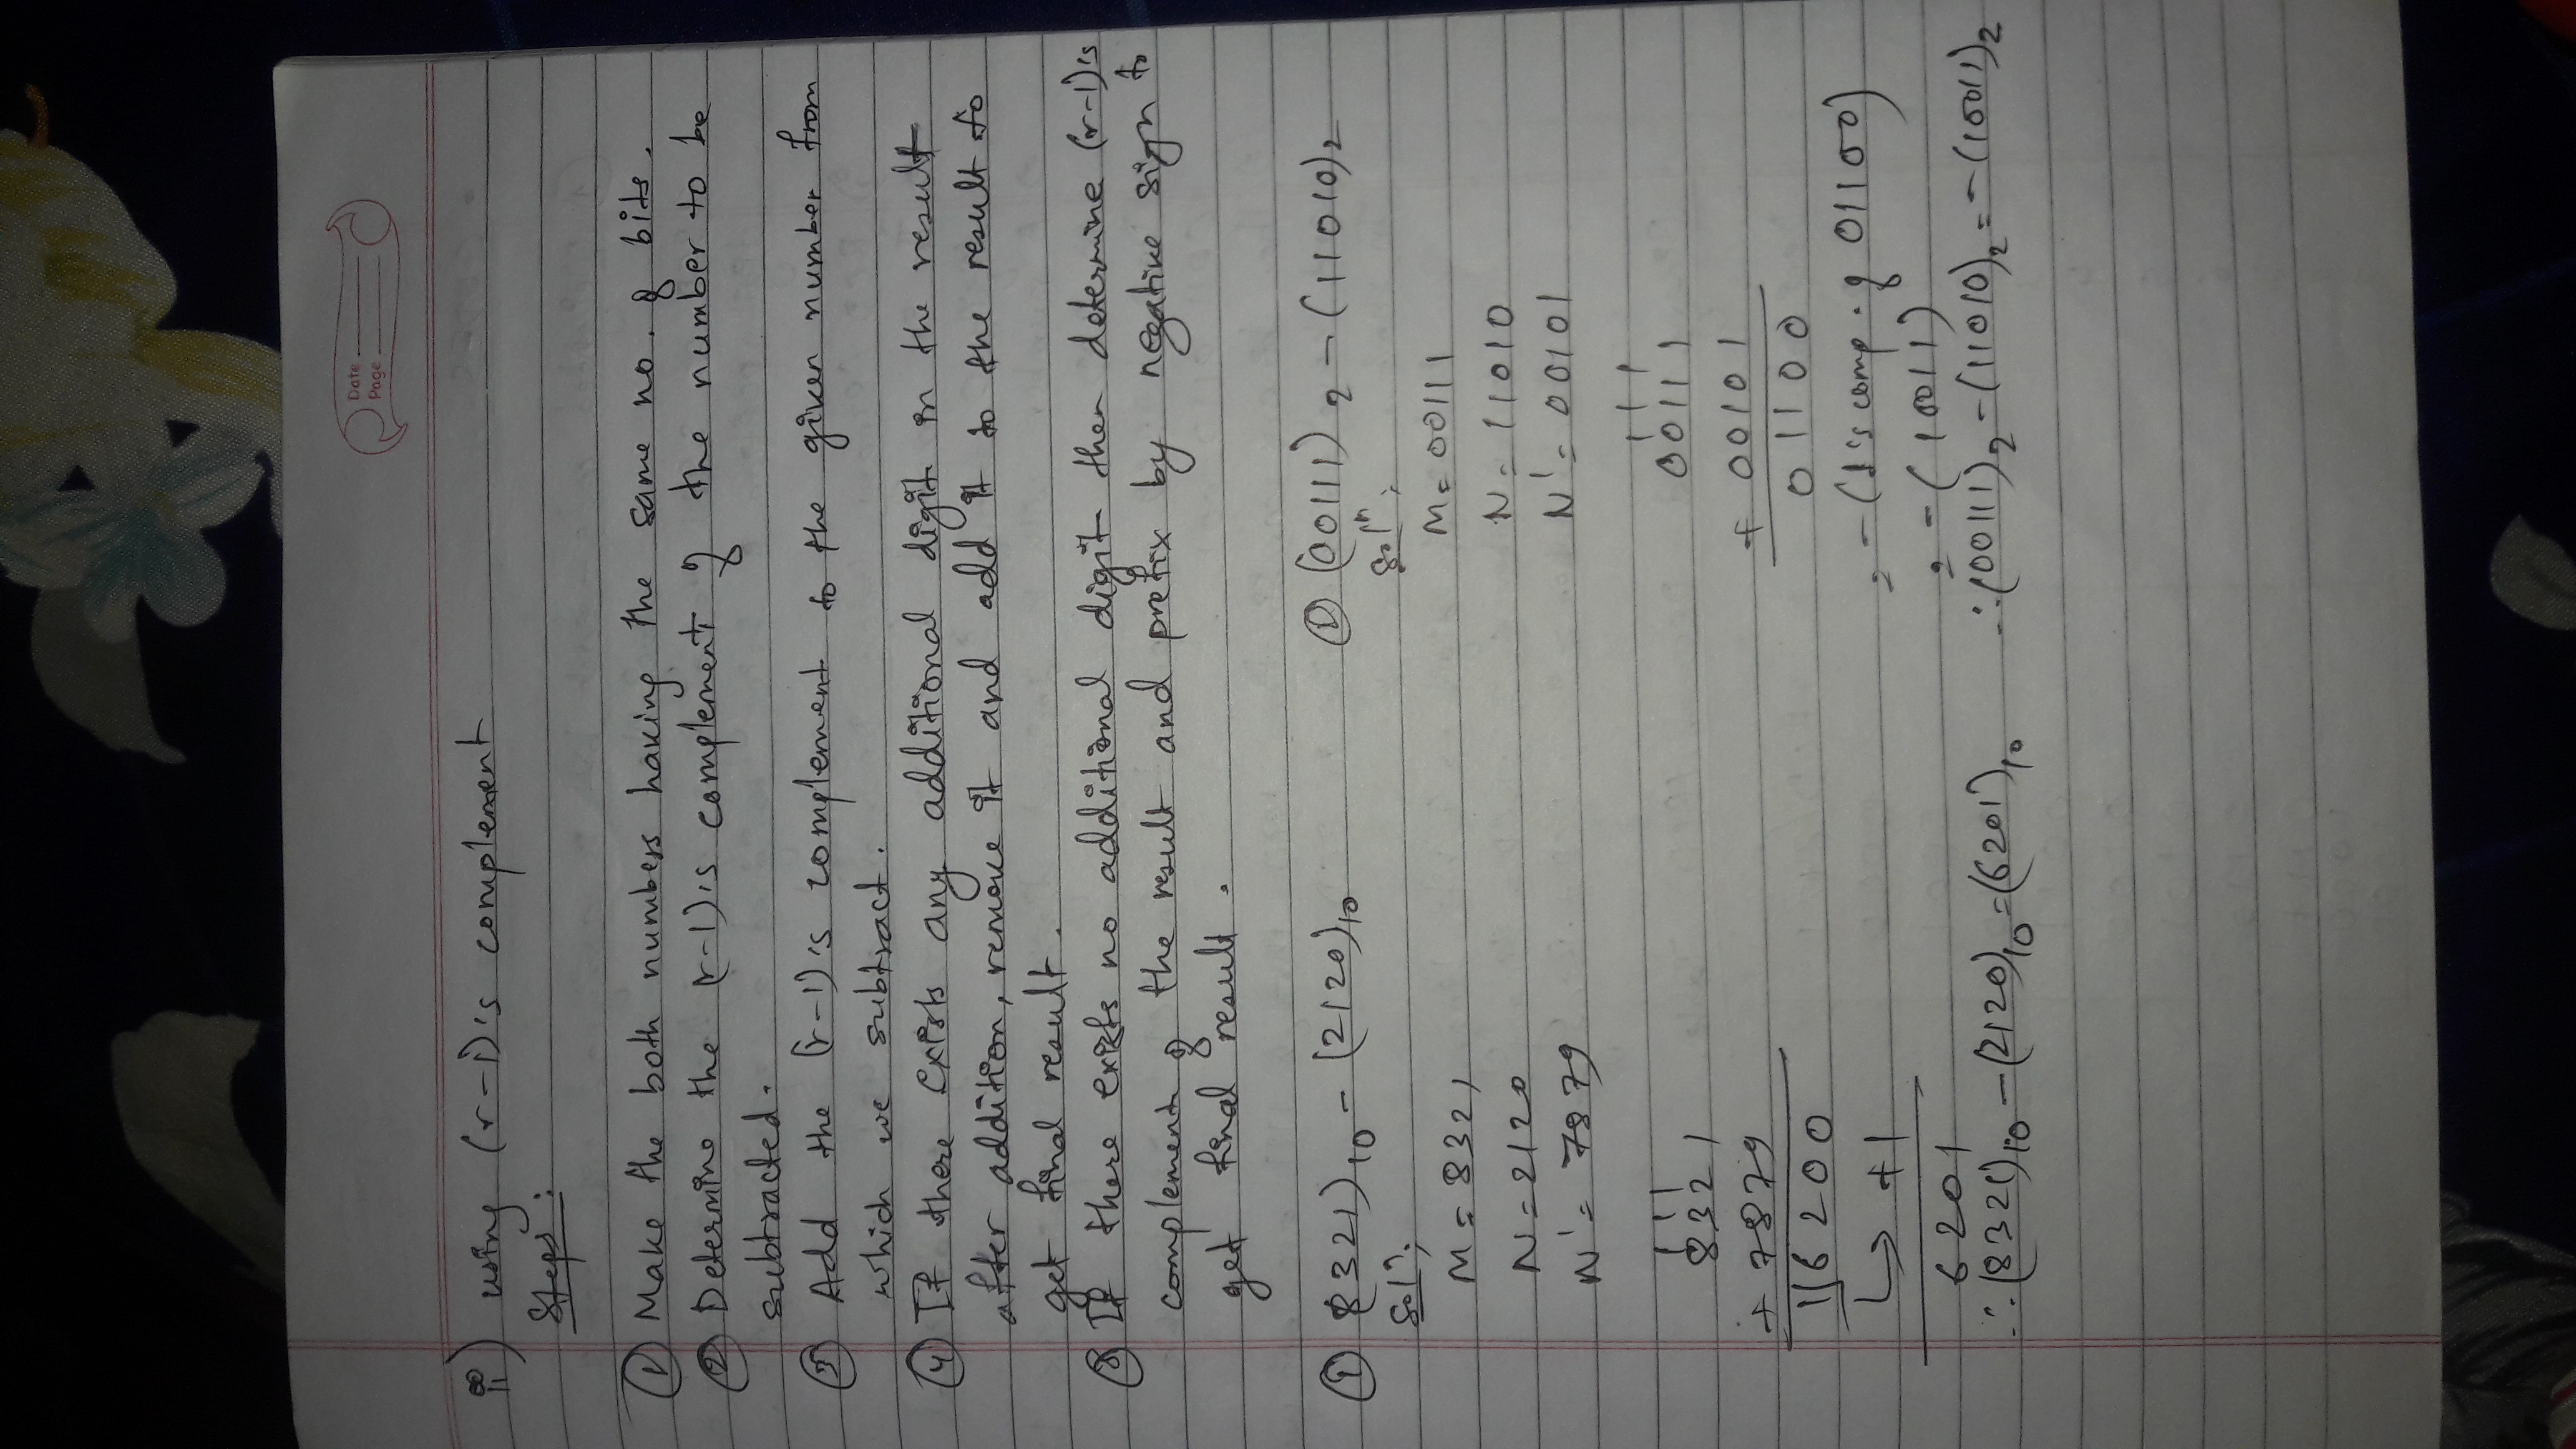 Date
Page
ii) using (r-1)'s complement
Steps:
① Make the both numbers having the same no. of bits.
② Determine the (r-1)'s complement of the number to be
subtracted.
③ Add the (r-1)'s complement to the given number from
which we subtract.
④ If there exists any additional digit in the result
after addition, remove it and add it to the result to
get final result.
⑤ If there exists no additional digit then determine (r-1)'s
complement of the result and prefix by negative sign to
get final result.
① (8321)10 - (2120)10
Soln:
M = 8321
N = 2120
N' = 7879
111
8321
+ 7879
16200
↳ +1
6201
∴ (8321)10 - (2120)10 = (6201)10
② (00111)2 - (11010)2
Soln:
M = 00111
N = 11010
N' = 00101
111
00111
+ 00101
01100
= - (1's comp. of 01100)
= - (10011)
∴ (00111)2 - (11010)2 = - (10011)2